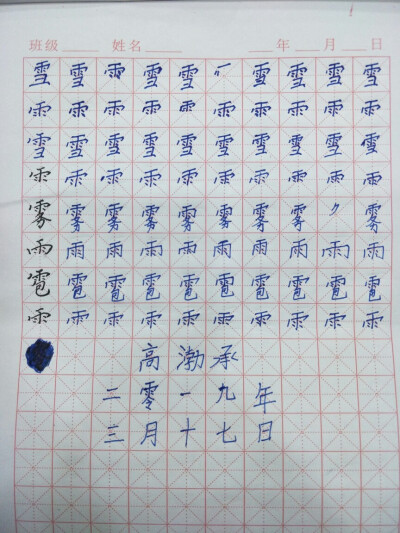 班级 姓名 年 月 日
雪 雪 雨 雪 雪 雪 雪 雪 雪
雨 雨 雨 雨 雨 雨 雨 雨 雨 雨
雪 雪 雪 雪 雪 雪 雪 雪 雪 雪
雨 雨 雨 雨 雨 雨 雨 雨 雨 雨
雾 雾 雾 雾 雾 雾 雾 雾 雾
雨 雨 雨 雨 雨 雨 雨 雨 雨 雨
雹 雹 雹 雹 雹 雹 雹 雹 雹 雹
雨 雨 雨 雨 雨 雨 雨 雨 雨 雨
高渤承
二零一九年
三月十七日